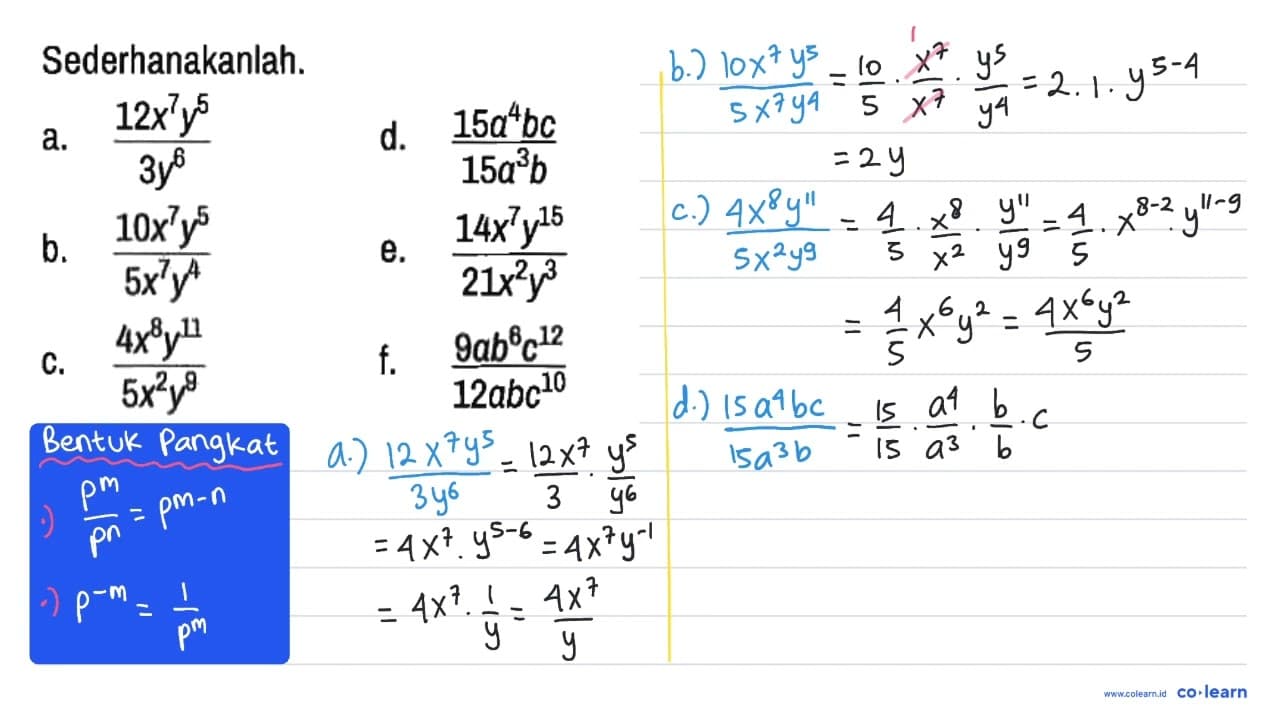 Sederhanakanlah.
a. 12x⁷y⁵/3y⁶
b. 10x⁷y⁵/5x⁷y⁴
c. 4x⁸y¹¹/5x²y⁹
d. 15a⁴bc/15a³b
e. 14x⁷y¹⁵/21x²y³
f. 9ab⁶c¹²/12abc¹⁰
Bentuk Pangkat
·) pᵐ/pⁿ = pᵐ⁻ⁿ
·) p⁻ᵐ = 1/pᵐ
a.) 12x⁷y⁵/3y⁶ = 12x⁷/3 · y⁵/y⁶
= 4x⁷ · y⁵⁻⁶ = 4x⁷y⁻¹
= 4x⁷ · 1/y = 4x⁷/y
b.) 10x⁷y⁵/5x⁷y⁴ = 10/5 · x⁷/x⁷ · y⁵/y⁴ = 2 . 1 . y⁵⁻⁴
1
= 2y
c.) 4x⁸y¹¹/5x²y⁹ = 4/5 · x⁸/x² · y¹¹/y⁹ = 4/5 . x⁸⁻² . y¹¹⁻⁹
= 4/5 x⁶y² = 4x⁶y²/5
d.) 15a⁴bc/15a³b = 15/15 · a⁴/a³ · b/b · c
www.colearn.id co·learn